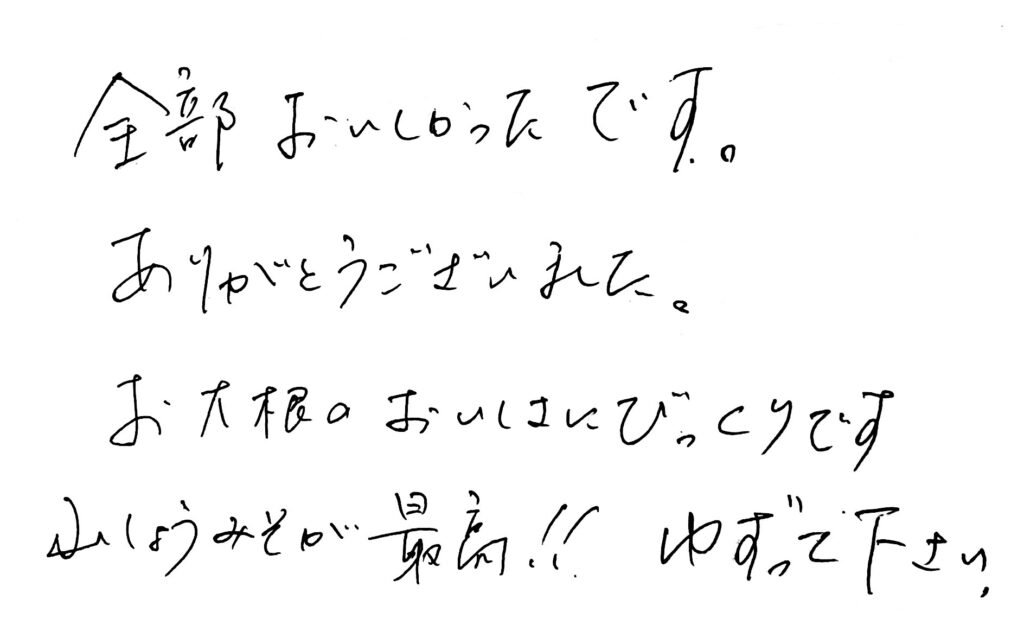 全部 おいしかったです。
ありがとうございました。
お大根の おいしさにびっくりです
山しょうみそが 最高!! ゆずって下さい、